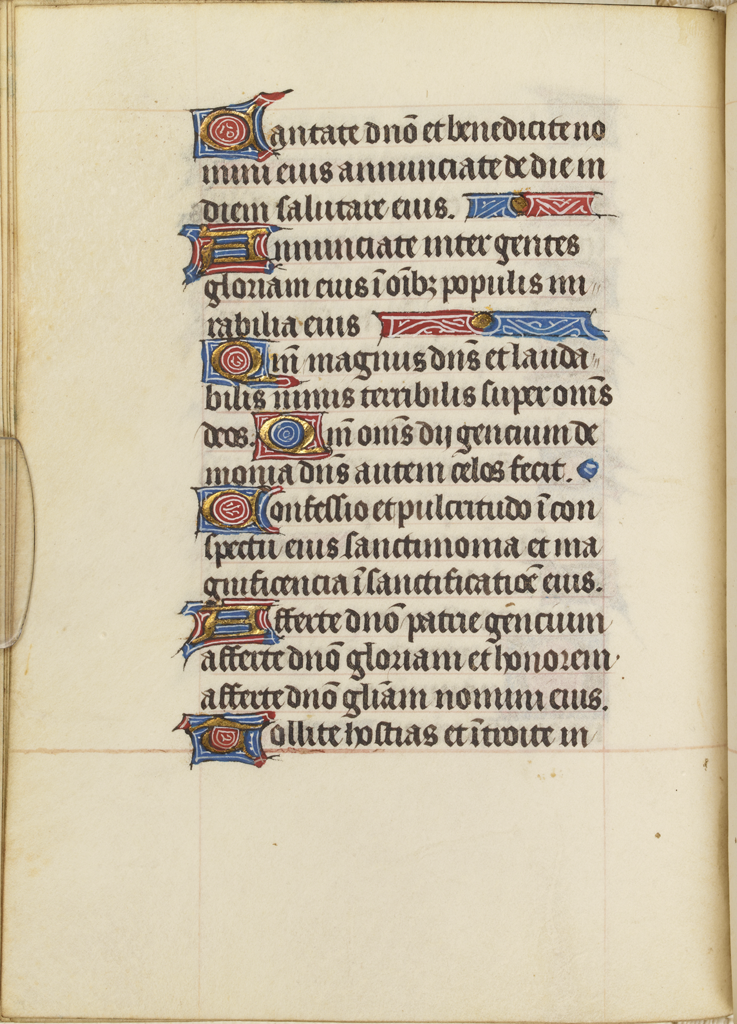 Cantate dnō et benedicite no
mini eius annunciate de die in
diem salutare eius.
Annunciate inter gentes
gloriam eius ī oībꝫ populis mi
rabilia eius
Qm̄ magnus dn̄s et lauda
bilis nimis terribilis super om̄s
deos. Qm̄ om̄s dij gencium de
monia dn̄s autem celos fecit.
Confessio et pulcritudo ī con
spectu eius sanctimonia et ma
gnificencia ī sanctificatiōe eius.
Afferte dnō patrie gencium
afferte dnō gloriam et honorem
afferte dnō gliam nomini eius.
Tollite hostias et ītroite in